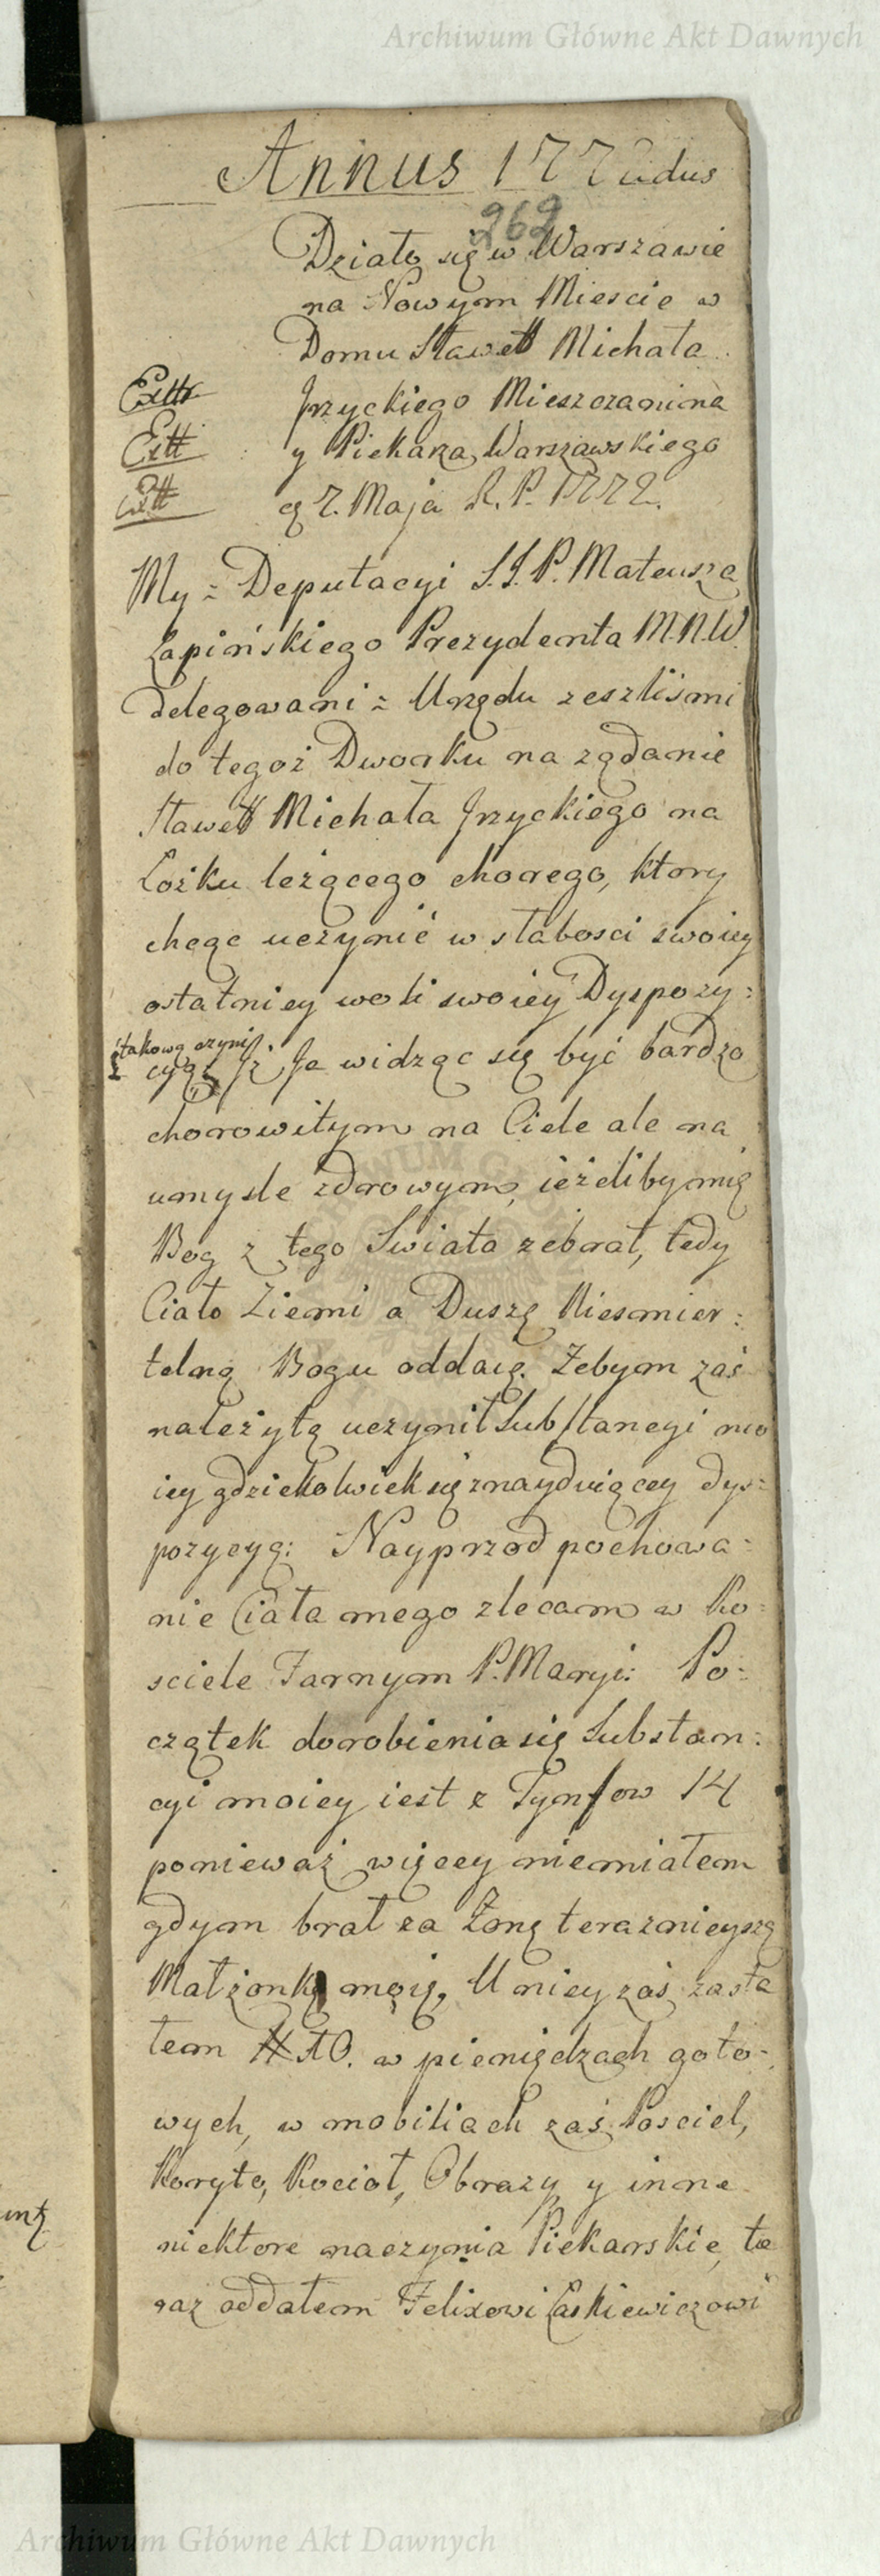 Archiwum Główne Akt Dawnych
Annus 1772dus
262
Działo się w Warszawie
na Nowym Miescie w
Domu Sławett Michała
Extr
Jrzyckiego Mieszczanina
Extt
y Piekarza Warszawskiego
Extt
7. Maja R. P. 1772.
My = Deputacyi S.S.P. Mateusza
Łapińskiego Prezydenta M.N.W.
Delegowani = Urzędu zeszliśmi
do tegoż Dworku na ządanie
Sławett Michała Jrzyckiego na
Łożku leżącego chorego, ktory
chcąc uczynić w słabosci swoiey
ostatniey woli swoiey Dyspozy=
takową czyni
cyą, Jż Ja widząc się być bardzo
chorowitym na Ciele ale na
umysle zdrowym, ieżeliby mię
Bog z tego Swiata zebrał, tedy
Ciało Ziemi a Duszę Niesmier=
telną Bogu oddaię. Żebym zaś
należytą uczynił Substancyi mo
iey gdziekolwiek się znayduiącey dys=
pozycyą: Nayprzod pochowa=
nie Ciała mego zlecam w Ko=
sciele Farnym P. Maryi: Po=
czątek dorobienia się Substan=
cyi moiey iest z Tynfow 14
ponieważ więcey niemiałem
gdym brał za Żonę teraznieyszą
Małżonkę moię, U niey zaś zasta
łem # 10. w pieniędzach goto=
wych, w mobiliach zaś Posciel,
Koryto, Kocioł, Obrazy y inne
niektore naczynia Piekarskie, te
raz oddałem Felixowi Laskiewiczowi
Archiwum Główne Akt Dawnych